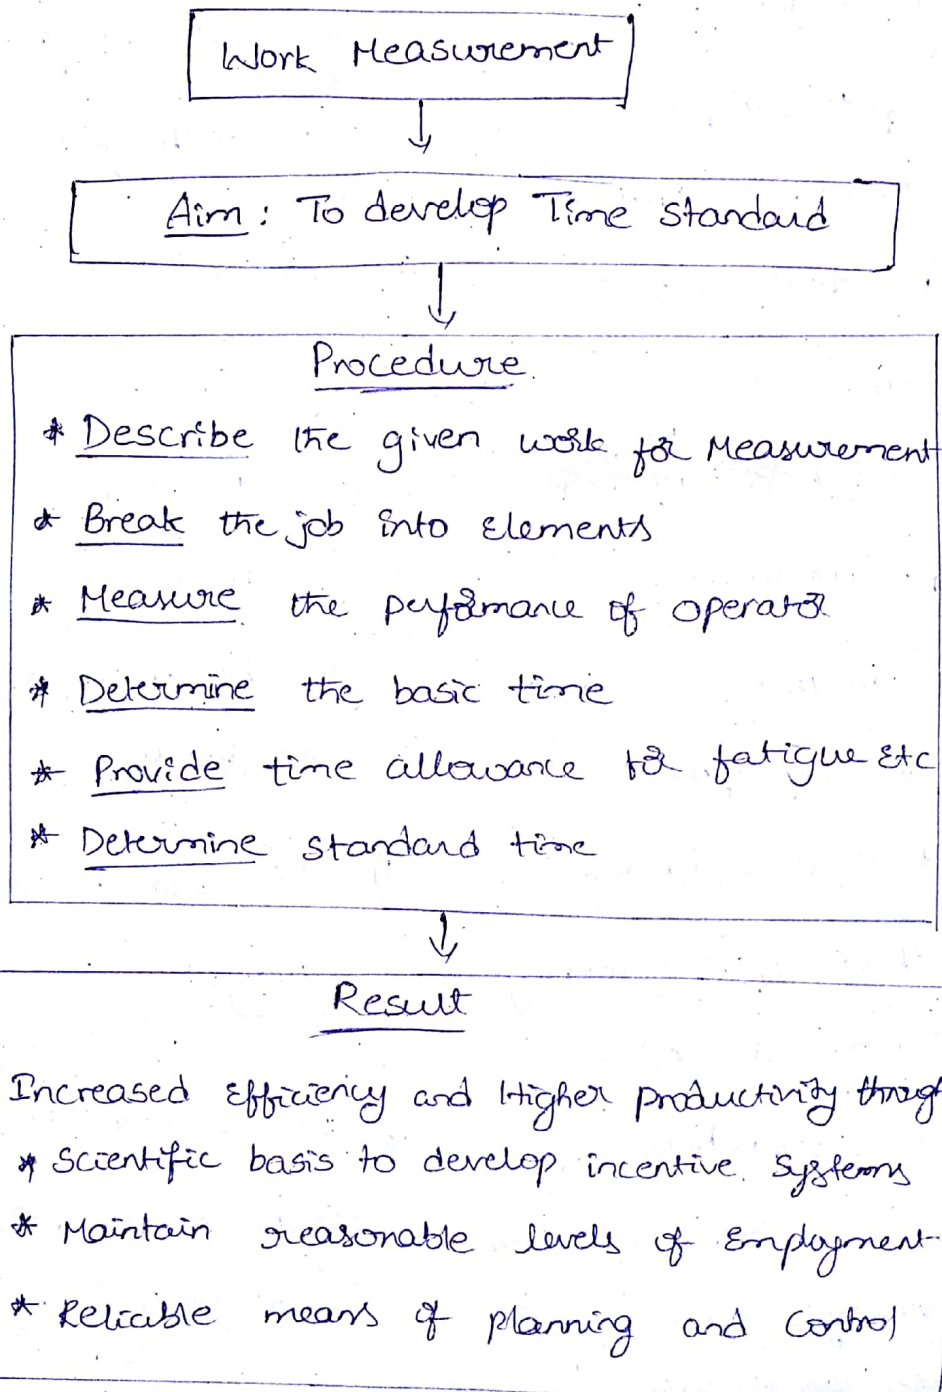 Work Measurement
Aim : To develop Time standard
Procedure.
* Describe the given work for Measurement
* Break the job into Elements
* Measure the performance of operator
* Determine the basic time
* Provide time allowance for fatigue Etc
* Determine standard time
Result
Increased Efficiency and Higher productivity throug
* Scientific basis to develop incentive. Systems
* Maintain reasonable levels of Employment.
* Reliable means of planning and Control